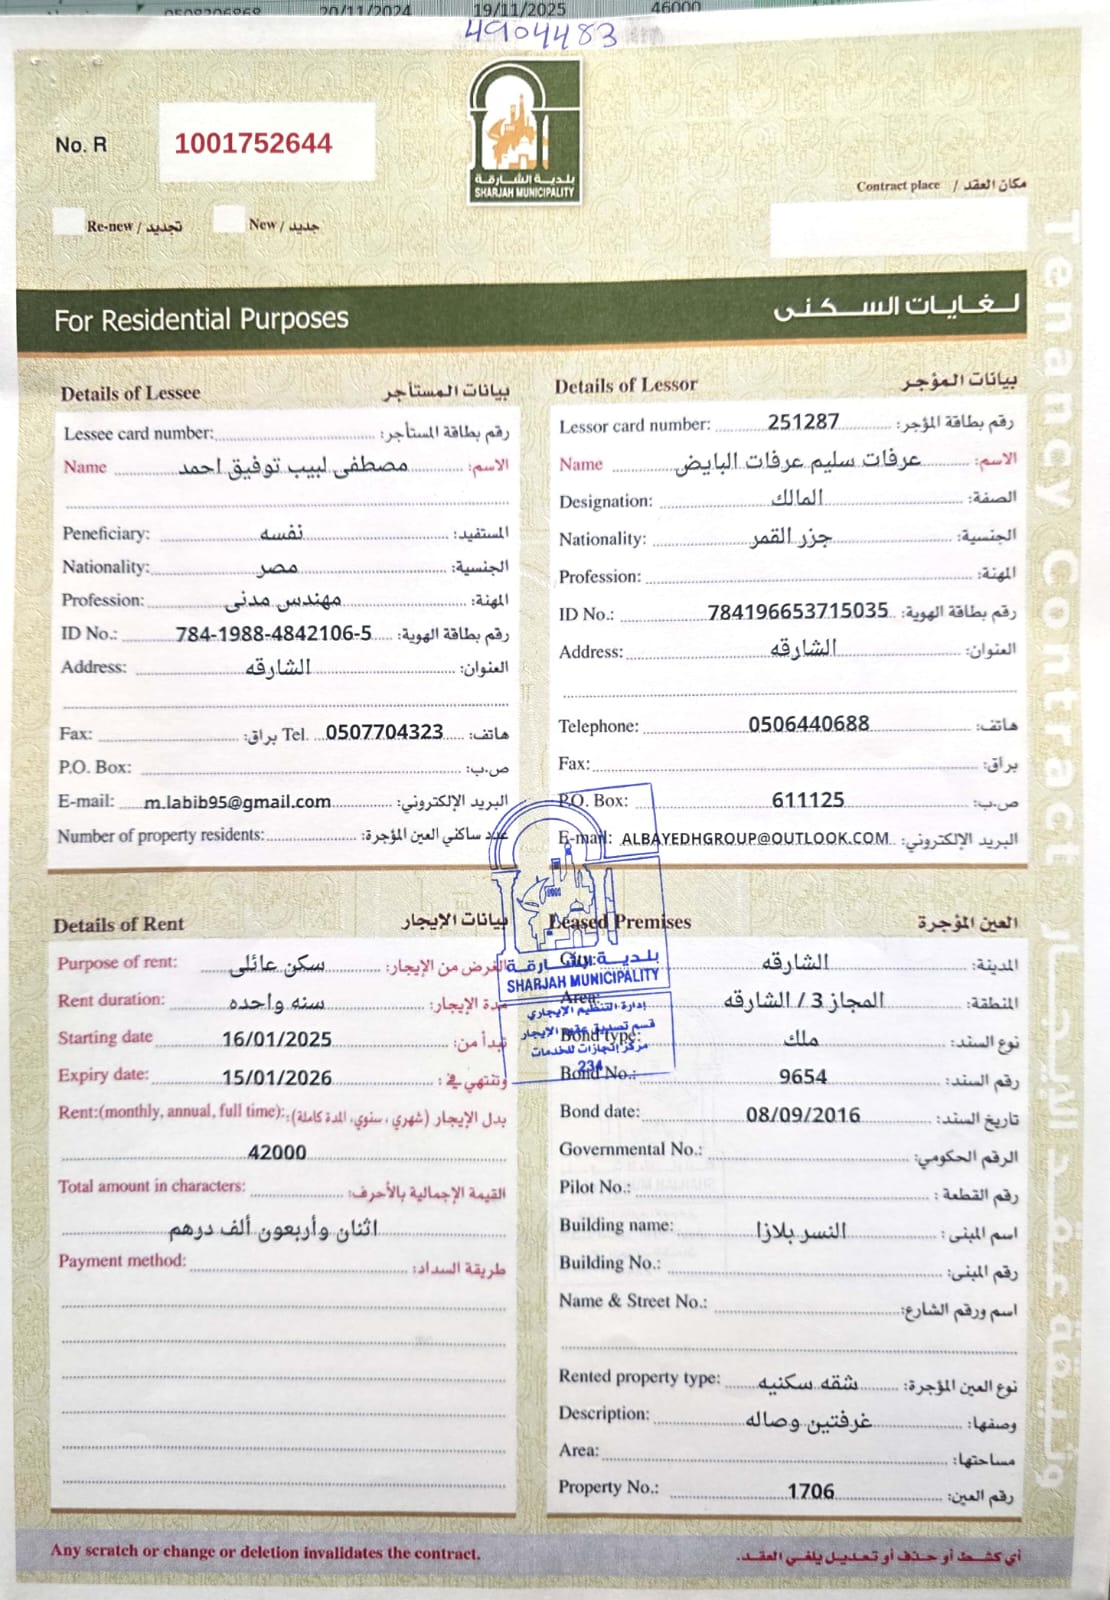 0508206868 20/11/2024 19/11/2025 46000
4904483
No. R 1001752644
بلدية الشارقة
SHARJAH MUNICIPALITY
Contract place / مكان العقد
Re-new / تجديد New / جديد
For Residential Purposes لغايات السكنى
Details of Lessee بيانات المستأجر
Lessee card number: رقم بطاقة المستأجر:
Name مصطفى لبيب توفيق احمد الاسم:
Peneficiary: نفسه المستفيد:
Nationality: مصر الجنسية:
Profession: مهندس مدنى المهنة:
ID No.: 784-1988-4842106-5 رقم بطاقة الهوية:
Address: الشارقه العنوان:
Fax: براق: Tel. 0507704323 هاتف:
P.O. Box: ص.ب:
E-mail: m.labib95@gmail.com البريد الإلكتروني:
Number of property residents: عدد ساكني العين المؤجرة:
Details of Lessor بيانات المؤجر
Lessor card number: 251287 رقم بطاقة المؤجر:
Name عرفات سليم عرفات البايض الاسم:
Designation: المالك الصفة:
Nationality: جزر القمر الجنسية:
Profession: المهنة:
ID No.: 784196653715035 رقم بطاقة الهوية:
Address: الشارقه العنوان:
Telephone: 0506440688 هاتف:
Fax: براق:
P.O. Box: 611125 ص.ب:
E-mail: ALBAYEDHGROUP@OUTLOOK.COM البريد الإلكتروني:
Details of Rent بيانات الإيجار
Purpose of rent: سكن عائلى الغرض من الإيجار:
Rent duration: سنه واحده مدة الإيجار:
Starting date 16/01/2025 تبدأ من:
Expiry date: 15/01/2026 وتنتهي في:
Rent:(monthly, annual, full time): بدل الإيجار (شهري، سنوي، المدة كاملة):
42000
Total amount in characters: القيمة الإجمالية بالأحرف:
اثنان وأربعون ألف درهم
Payment method: طريقة السداد:
Leased Premises العين المؤجرة
City: الشارقه المدينة:
Area: المجاز 3 / الشارقه المنطقة:
Bond type: ملك نوع السند:
Bond No.: 9654 رقم السند:
Bond date: 08/09/2016 تاريخ السند:
Governmental No.: الرقم الحكومي:
Pilot No.: رقم القطعة:
Building name: النسر بلازا اسم المبنى:
Building No.: رقم المبنى:
Name & Street No.: اسم ورقم الشارع:
Rented property type: شقه سكنيه نوع العين المؤجرة:
Description: غرفتين وصاله وصفها:
Area: مساحتها:
Property No.: 1706 رقم العين:
بلدية الشارقة
SHARJAH MUNICIPALITY
إدارة التنظيم الإيجاري
قسم تصديق عقود الإيجار
مركز إنجازات للخدمات
234
Any scratch or change or deletion invalidates the contract. أي كشط أو حذف أو تعديل يلغي العقد.
Tenancy Contract
وثيقة عقد الإيجار